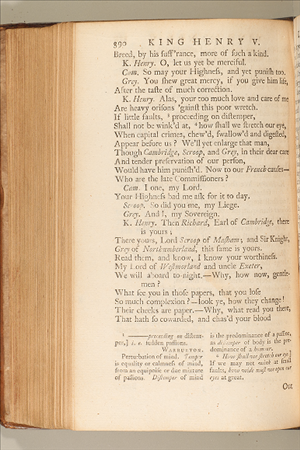 390 KING HENRY V.
Breed, by his suff'rance, more of such a kind.
K. Henry. O, let us yet be merciful.
Cam. So may your Highness, and yet punish too.
Grey. You shew great mercy, if you give him life,
After the taste of much correction.
K. Henry. Alas, your too much love and care of me
Are heavy orisons 'gainst this poor wretch.
If little faults, proceeding on distemper,
Shall not be wink'd at, how shall we stretch our eye,
When capital crimes, chew'd, swallow'd and digested,
Appear before us? We'll yet enlarge that man,
Though Cambridge, Scroop, and Grey, in their dear care
And tender preservation of our person,
Would have him punish'd. Now to our French causes—
Who are the late Commissioners?
Cam. I one, my Lord.
Your Highness bad me ask for it to day.
Scroop. So did you me, my Liege.
Grey. And I, my Sovereign.
K. Henry. Then Richard, Earl of Cambridge, there
is yours;
There yours, Lord Scroop of Masham; and Sir Knight,
Grey of Northumberland, this same is yours.
Read them, and know, I know your worthiness.
My Lord of Westmorland and uncle Exeter,
We will aboard to night.—Why, how now, gentle-
men?
What see you in those papers, that you lose
So much complexion?—look ye, how they change!
Their cheeks are paper.—Why, what read you there,
That hath so cowarded, and chas'd your blood
——proceeding on distem-
per,] i. e. sudden passions.
WARBURTON.
Perturbation of mind. Temper
is equality or calmness of mind,
from an equipoise or due mixture
of passions. Distemper of mind
is the predominance of a passion,
as distemper of body is the pre-
dominance of a humour.
How shall we stretch our eye]
If we may not wink at small
faults, how wide must we open our
eyes at great.
Out